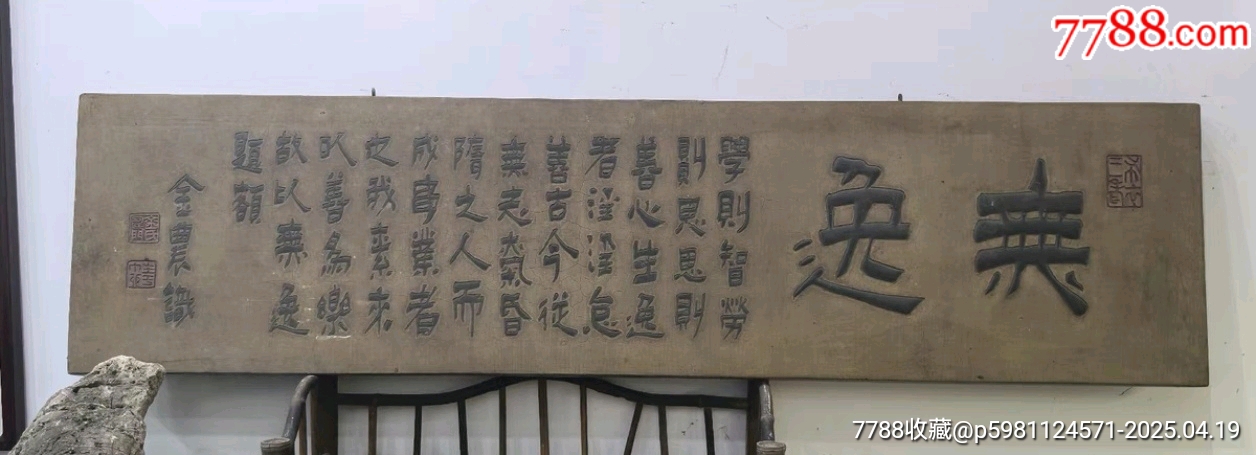 無逸
學則智勞
則思思則
善心生逸
者淫淫怠
善古今從
無志氣昏
隋之人而
成事業者
也我素來
以善為樂
故以無逸
題額
金農識
7788.com
7788收藏@p5981124571-2025.04.19